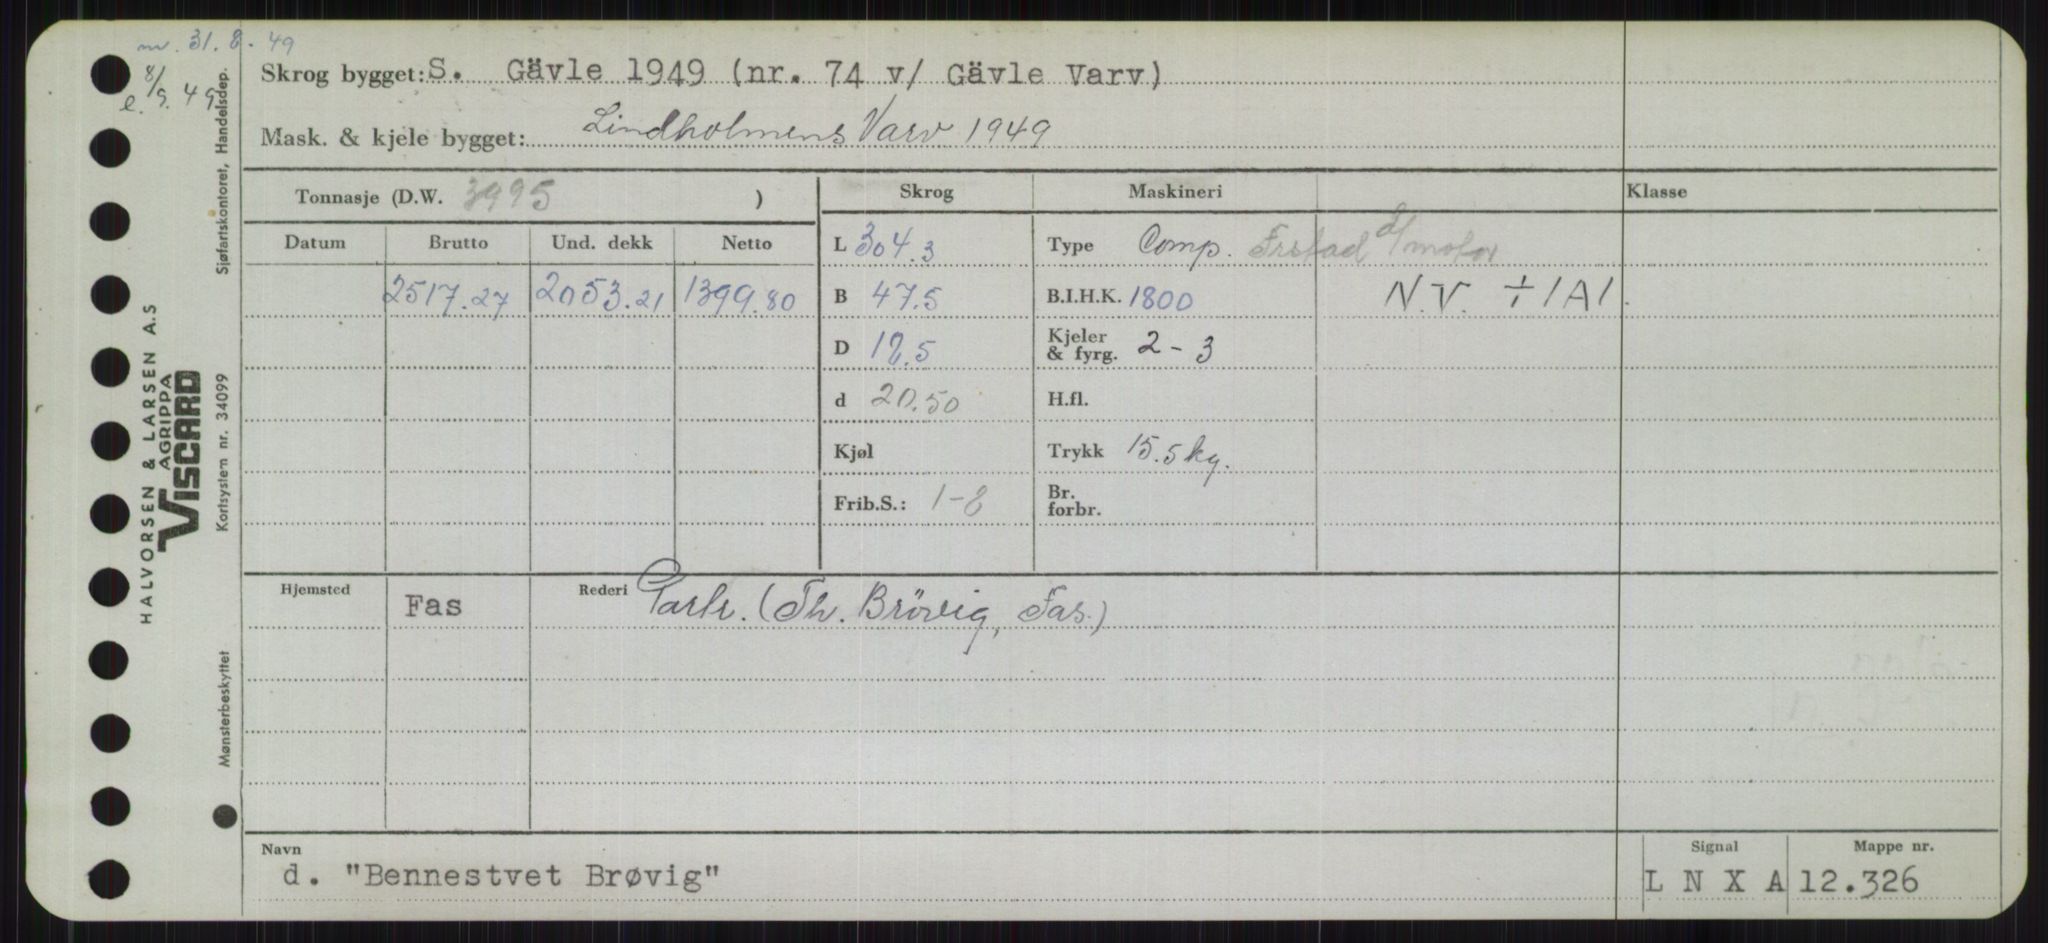 nv. 31. 8. 49
8/9. 49
Skrog bygget: S. Gävle 1949 (nr. 74 v/ Gävle Varv)
Mask. & kjele bygget: Lindholmens Varv 1949
Tonnasje (D.W. 3995 )
Skrog Maskineri Klasse
Datum Brutto Und. dekk Netto
2517.27 2053.21 1399.80
L 304.3
B 47.5
D
d 20.50
Kjøl
Frib.S.: 1-8
Type Comp.
B.I.H.K. 1800
N.V. + 1A1.
Kjeler & fyrg. 2 - 3
H.fl.
Trykk 15.5 kg.
Br. forbr.
Hjemsted Fas Rederi Partr. (Th. Brövig, Fas.)
Navn
d. "Bennestvet Brøvig"
Signal
L N X A
Mappe nr.
12.326
Sjøfartskontoret, Handelsdep.
HALVORSEN & LARSEN A.S
AGRIPPA
VISCARD
Kortsystem nr. 34099
Mønsterbeskyttet